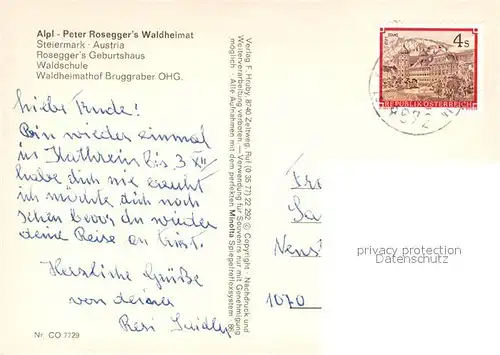 Alpl - Peter Rosegger's Waldheimat
Steiermark · Austria
Rosegger's Geburtshaus
Waldschule
Waldheimathof Bruggraber OHG.
liebe Trude!
Bin wieder einmal
in Kathrein bis 3 XII
habe dich nie
ich möchte dich noch
sehen bevor du wieder
deine Reise an
Herzliche Grüße
von deiner
Resi
Nr. CO 7729
Verlag F. Hruby, 8740 Zeltweg, Ruf (0 35 77) 22 292 © Copyright · Nachdruck und
Weiterverarbeitung verboten — Verwendung für Souvenirs nur mit Genehmigung
möglich · Alle Aufnahmen mit dem perfekten Minolta Spiegelreflexsystem · 86
4 S
REPUBLIK ÖSTERREICH
8672
1070
privacy protection
Datenschutz